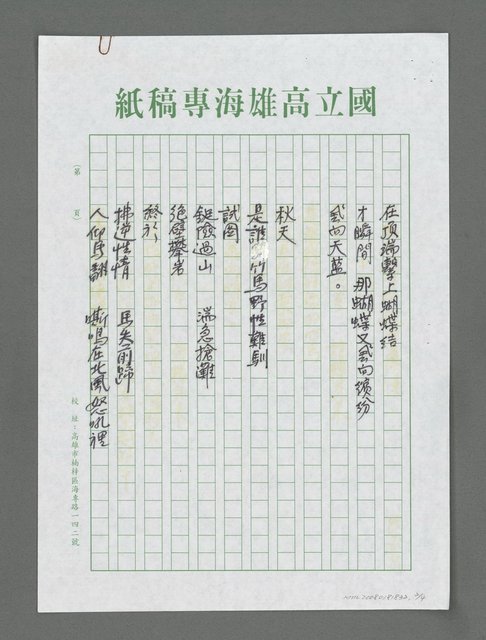 國立高雄海專稿紙
在頂端繫上蝴蝶結
才瞬間 那蝴蝶又飛向繽紛
飛向天藍。
秋天
是誰 竹馬野性難馴
試圖
鋌險過山 湍急搶灘
絕壁攀岩
終於,
拂逆性情 馬失前蹄
人仰馬翻 嘶鳴在北風怒吼裡
(第 頁)
校 址:高雄市楠梓區海專路一四二號